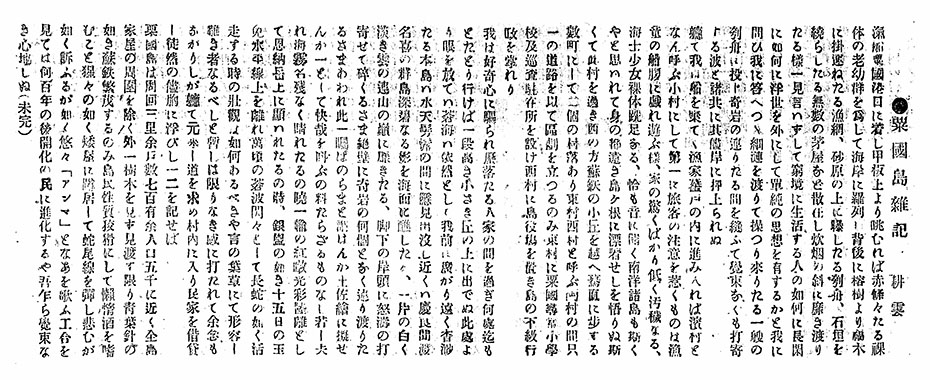 粟國島雜記　耕雲
粟國港口に着し甲板上より眺むれば赤條々たる裸
体の老幼群を爲して海岸に羅列し背後に榕樹より福木
に掛連ねたる漁網、砂原の上に曝したる刳舟、石垣を
繞らしたる無數の茅屋など散在し炊烟の斜に靡き渡り
たる樣一見言いずして境に生活する人の如何に長閑
に如何に浮世を外にして單純の思想を有するかと我に
問ひ我に答へつゝ細漣を渡りて操つり來りたる一艘の
刳舟に投し奇岩の連りたる間を縫ふて覺束なくも打寄
する波と諸共に其彼岸に押上られぬ
軈て我は船を棄てゝ漁家蜑戸の内に進み入れは濱村と
なん呼ぶ小村にして第一に旅客の注意を惹くものは漁
童の船勝に戯れ遊ぶ樣、家の驚くばかり低く汚穢なる、
海士少女裸体跣足なる、恰も音に聞く南洋諸島も斯く
やと思われて身の絶遠き島ヶ根に漂寄せしを悟りぬ斯
くて此村を過き酉の方蘇鉄の小丘を越へ驀直に歩する
數町にして二個の村落あり東村西村と呼ぶ両村の間只
一の道路を以て區劃を立つるのみ東村に粟國尋常小學
校及巡査駐在所を設け西村に島役塲を置き島の行
政を掌れり
我は好奇心に驅られ歴落たる人家の間を過ぎ何處迄も
とたどり行けば一段高き小さき丘の上に出でぬ此處よ
り眼を放てい蒼海い依然として我前に廣がり遠く杳渺
たる本島い水天髣髴の間に隱見出沒し近くい慶良間渡
名喜の群島深碧なる影を海面に醮したる、一片の白く
淡き雲の遠山の巓に靡きたる、脚下の岸頭に怒濤の打
寄せて碎くるさま絶壁に奇岩の何個となく連り渡りた
るさまわれ此一ぱのらまと謂はんか土佐繪に擬せ
んか一として快哉を呼ぶの料たらざるものなし若し夫
れ海霧名殘なく晴れたるの曉一輪の紅暾光彩陸離とし
て恩納岳上に顯れたるの時、銀盤の如き十五日の玉
兔水平線上を離れ萬頃の蒼波閃々として長蛇の如く活
走する時の壯觀は如何あるべきや言の葉草にて形容し
難き者なるべしと暫しは限りなき感に打たれて余念も
あかりしが軈て元來し道を求め村内に入り民家を借
し徒然の儘胸に浮びし一二を記せば
粟國島は周回三里余戸數七百有余人口五千に近く全島
家屋の周圍を除く外一樹木を見ず見渡す限り青葉針の
如き蘇鉄繁茂するのみ島民性質にして懶惰酒を嗜
むこと猩々の如く矮屋に居して蛇尾線を彈し悲むが
如く訴ふるが如く悠々「アンマ」となあを歌ふ工合を
見ては何百年の後開化の民に進化するや吾乍ら覺束な
き心地しぬ（未完）